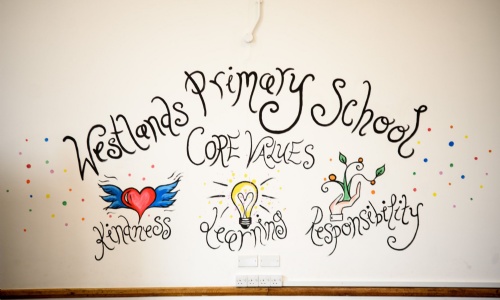 Westlands Primary School
CORE VALUES
Kindness
Learning
Responsibility